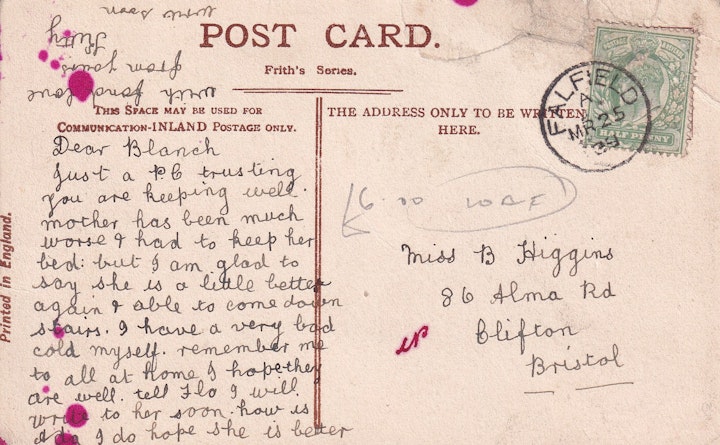 POST CARD.
Frith's Series.
THIS SPACE MAY BE USED FOR
COMMUNICATION-INLAND POSTAGE ONLY.
THE ADDRESS ONLY TO BE WRITTEN
HERE.
Printed in England.
FALFIELD
A
MR 25
09
HALF PENNY
Dear Blanch
Just a P.C trusting
you are keeping well.
mother has been much
worse & had to keep her
bed: but I am glad to
say she is a little better
again & able to come down
stairs. I have a very bad
cold myself. remember me
to all at home I hope they
are well. tell Flo I will
write to her soon. how is
I do hope she is better
with fondest love
from yours
write soon
Miss B Higgins
86 Alma Rd
Clifton
Bristol
6.00